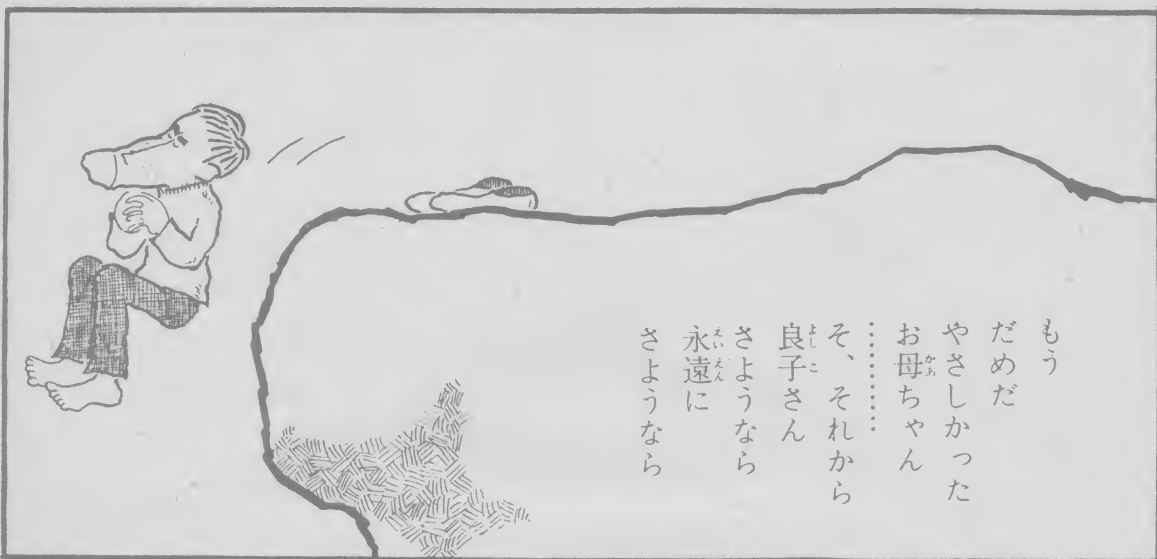 もう
だめだ
やさしかった
お母ちゃん
………
そ、それから
良子さん
さようなら
永遠に
さようなら